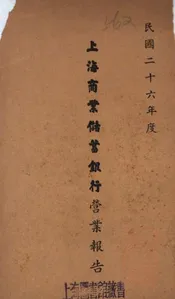 562
民國二十六年度
上海商業儲蓄銀行營業報告